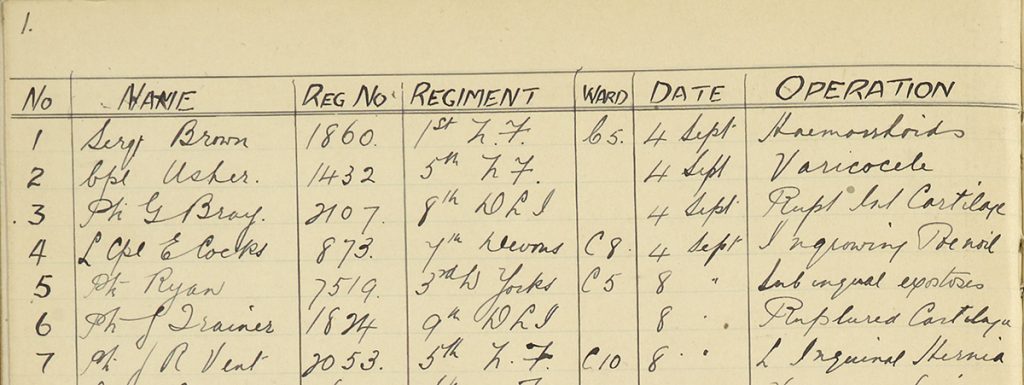 1.
No NAME REG NO REGIMENT WARD DATE OPERATION
1 Sergt Brown 1860. 1st N.F. C5. 4 Sept Haemorrhoids
2 Cpl Usher. 1432 5th N.F. 4 Sept Varicocele
3 Pte G Bray. 2107. 8th DLI 4 Sept Rupt Int Cartilage
4 L Cpl E Cocks 873. 7th Devons C8. 4 Sept Ingrowing Toenail
5 Pte Ryan 7519. 3rd W Yorks C5 8 " Sub ingual exostosis
6 Pte J Trainer 1824 9th DLI 8 " Ruptured Cartilage
7 Pte J R Vent 2053. 5th N.F. C10 8 " L Inguinal Hernia